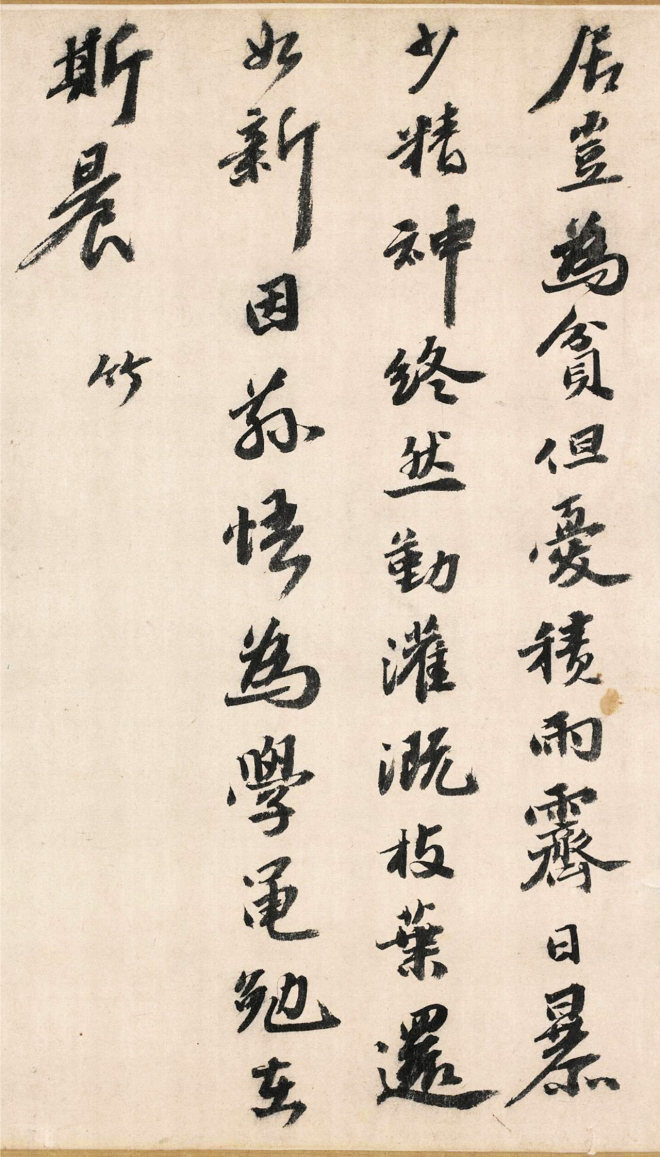 居豈為貧但憂積雨霽日暴
少精神終然勤灌溉枝葉還
如新因蓀悟為學黽勉在
斯晨
竹